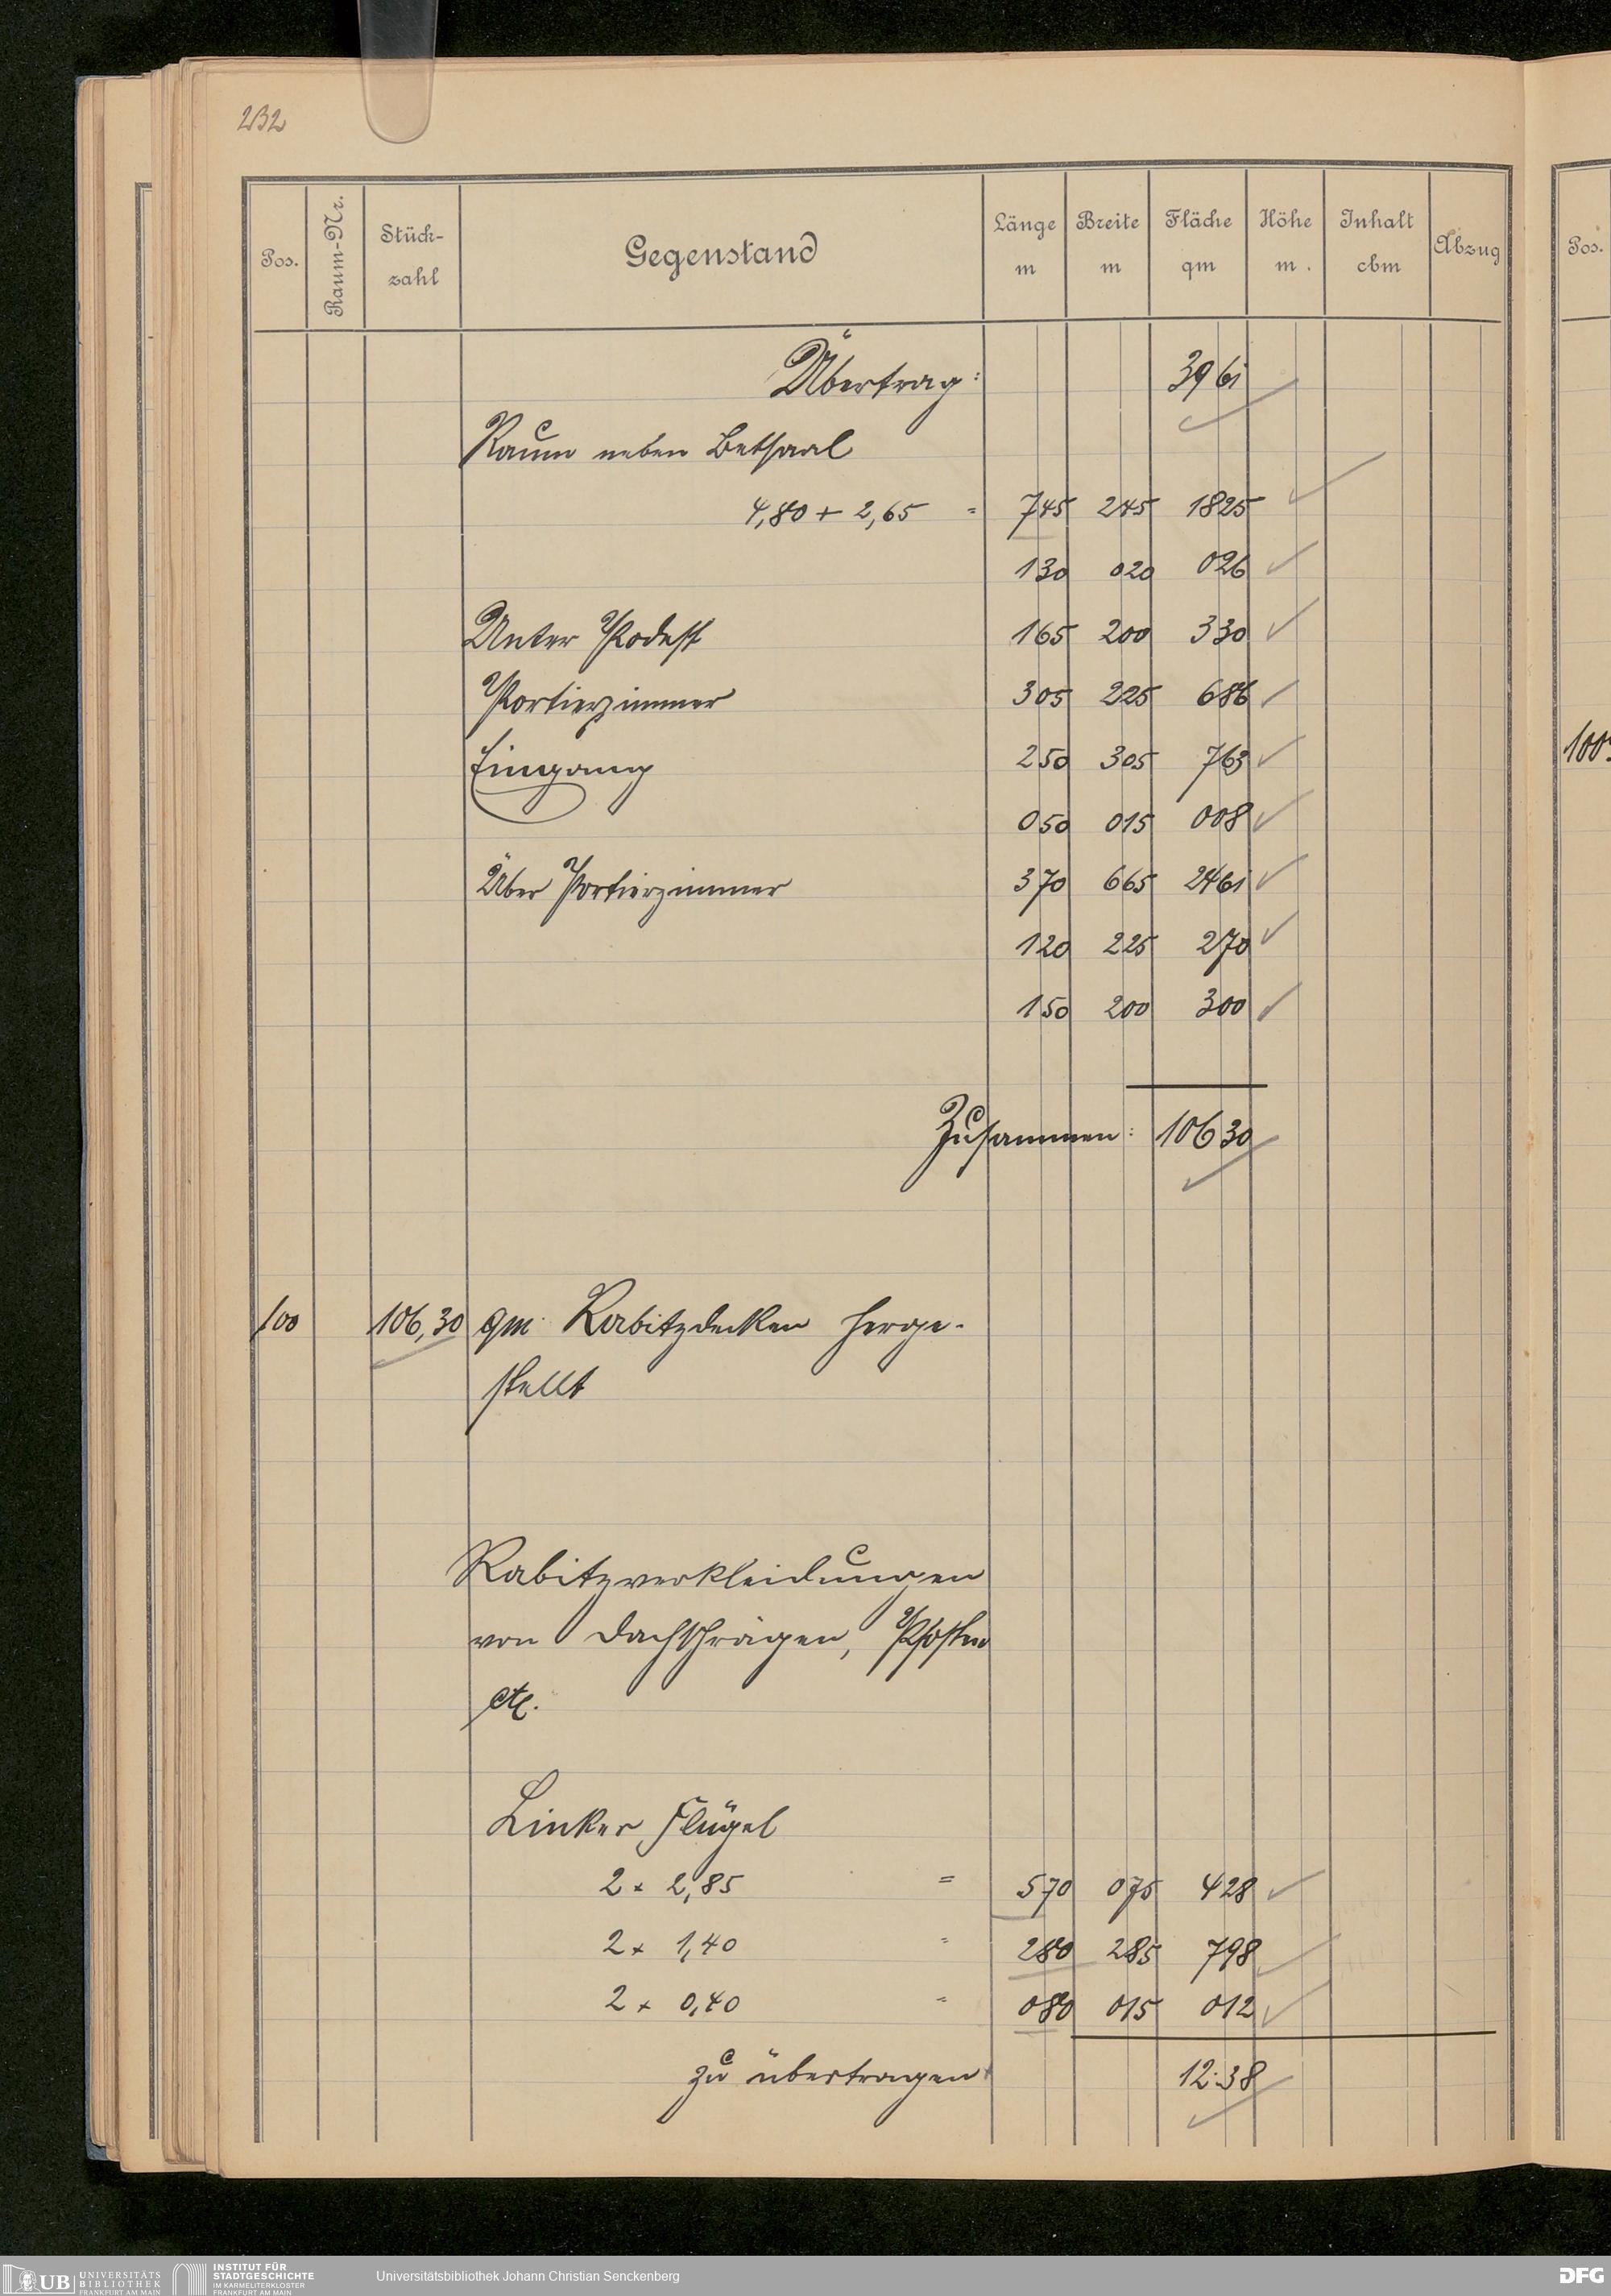 232
Pos. Raum-Nr. Stück-zahl Gegenstand Länge m Breite m Fläche qm Höhe m. Inhalt cbm Abzug
Pos.
Übertrag: 39 61
Raum neben Betsaal
4,80 + 2,65 = 7 45 2 45 18 25
1 30 0 20 0 26
Unter Podest 1 65 2 00 3 30
Portierzimmer 3 05 2 25 6 86
Eingang 2 50 3 05 7 63
0 50 0 15 0 08
Über Portierzimmer 3 70 6 65 24 61
1 20 2 25 2 70
1 50 2 00 3 00
Zusammen: 106 30
100 106,30 qm Rabitzdecken herge-
stellt
Rabitzverkleidungen
von Dachschrägen, Pfosten
etc.
Linker Flügel
2 × 2,85 = 5 70 0 75 4 28
2 × 1,40 = 2 80 2 85 7 98
2 × 0,40 = 0 80 0 15 0 12
zu übertragen 12.38
100
UB UNIVERSITÄTS BIBLIOTHEK FRANKFURT AM MAIN
INSTITUT FÜR STADTGESCHICHTE IM KARMELITERKLOSTER FRANKFURT AM MAIN
Universitätsbibliothek Johann Christian Senckenberg
DFG